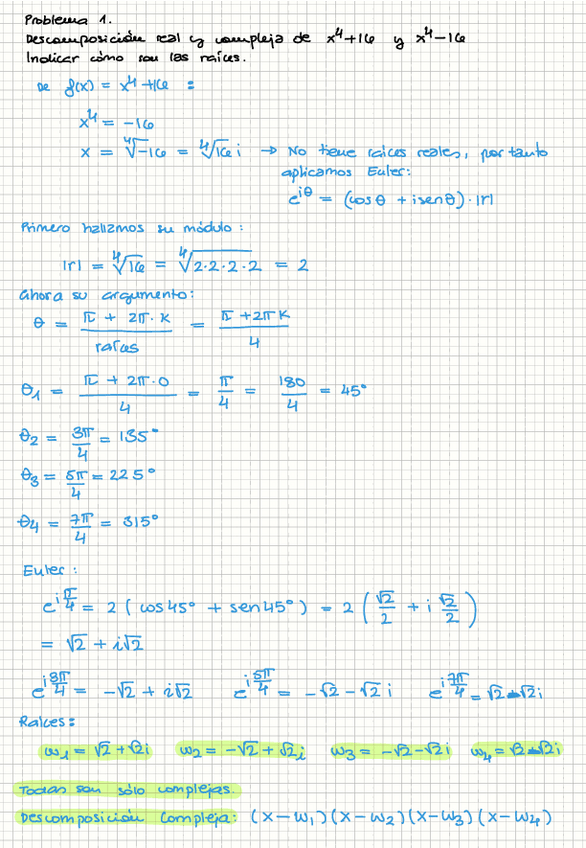 Problema 1.
Descomposición real y compleja de x⁴+16 y x⁴−16
Indicar cómo son las raíces.
De f(x) = x⁴+16 :
x⁴ = −16
x = ⁴√−16 = ⁴√16 i → No tiene raíces reales, por tanto
aplicamos Euler:
e^iθ = (cosθ + i senθ)·|r|
Primero hallamos su módulo:
|r| = ⁴√16 = ⁴√2·2·2·2 = 2
Ahora su argumento:
θ = (π + 2π·K)/raíces = (π+2πK)/4
θ₁ = (π + 2π·0)/4 = π/4 = 180/4 = 45°
θ₂ = 3π/4 = 135°
θ₃ = 5π/4 = 225°
θ₄ = 7π/4 = 315°
Euler:
e^iπ/4 = 2 (cos45° + sen45°) = 2 (√2/2 + i √2/2)
= √2 + i√2
e^i3π/4 = −√2 + i√2 e^i5π/4 = −√2 − √2 i e^i7π/4 = √2 − √2 i
Raíces:
ω₁ = √2 + √2 i ω₂ = −√2 + √2 i ω₃ = −√2 − √2 i ω₄ = √2 − √2 i
Todas son sólo complejas.
Descomposición Compleja: (x−ω₁)(x−ω₂)(x−ω₃)(x−ω₄)